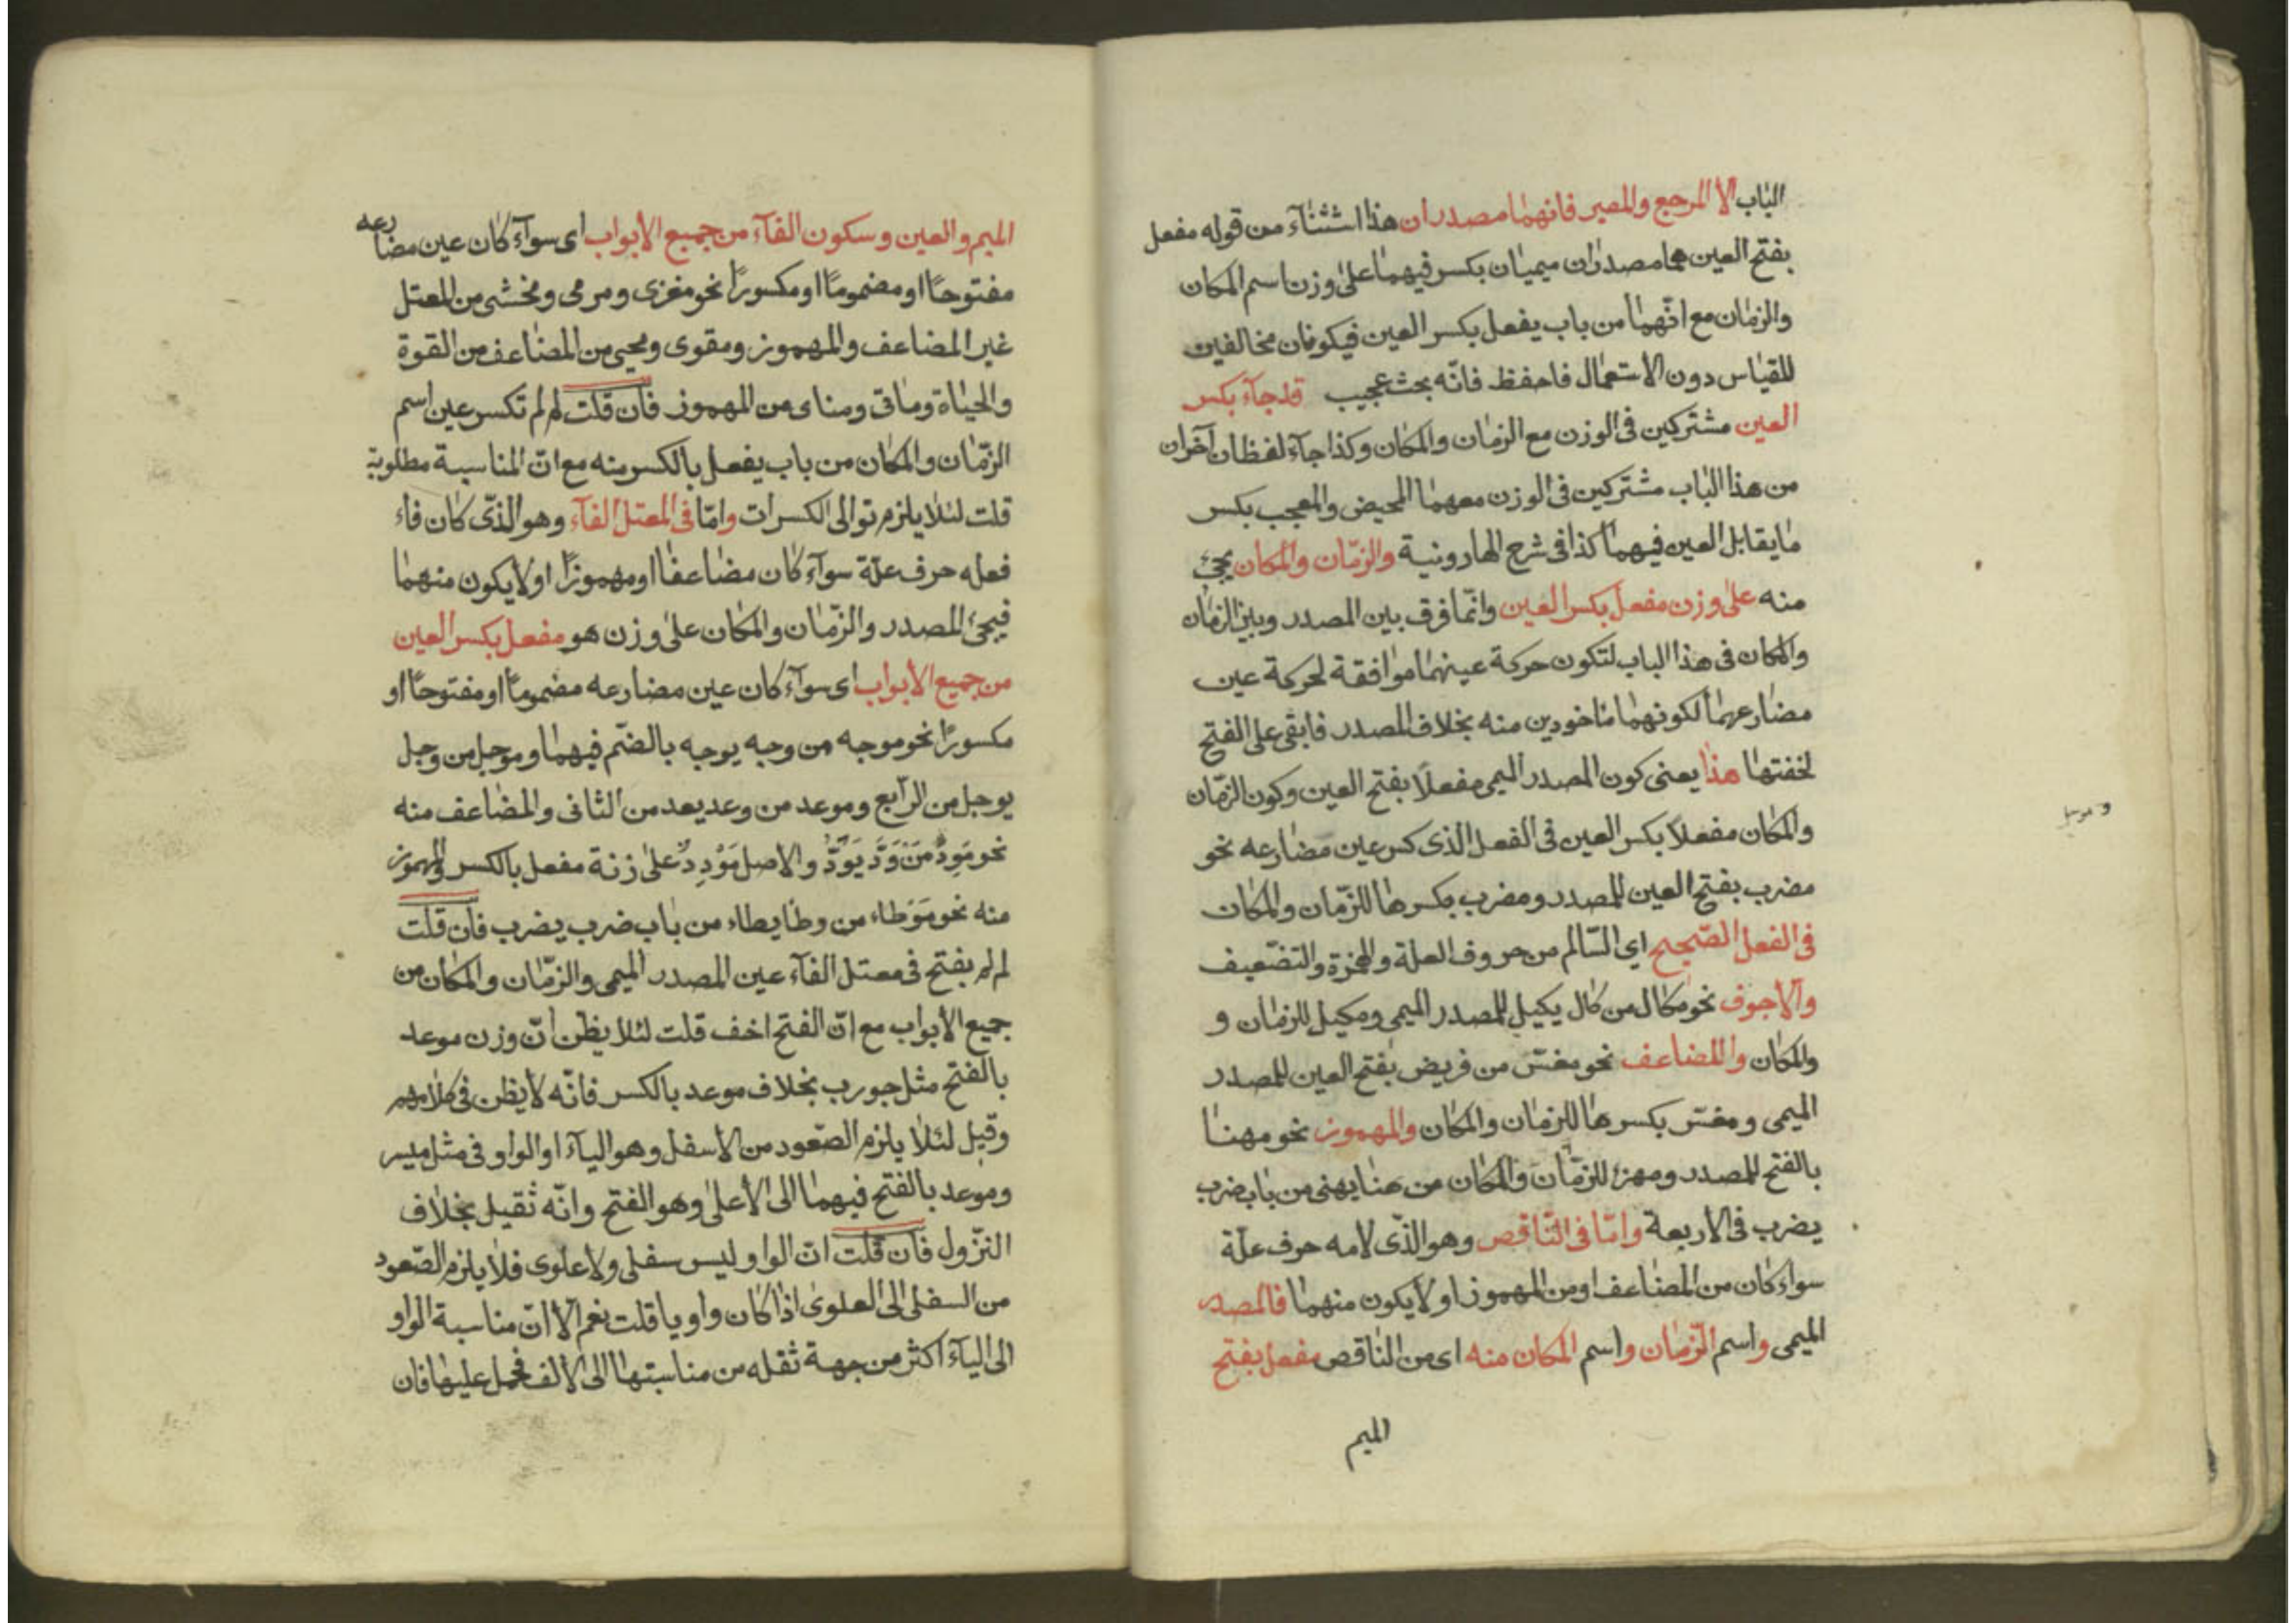 الباب الا المرجع والمصير فانهما مصدران هذا استثناء من قوله مفعل
بفتح العين هما مصدران ميميان بكسر فيهما على وزن اسم المكان
والزمان مع انّهما من باب يفعل بكسر العين فيكونان مخالفين
للقياس دون الاستعمال فاحفظ فانّه بحث عجيب قد جآء بكسر
العين مشتركين في الوزن مع الزمان والمكان وكذا جآء لفظان آخران
من هذا الباب مشتركين في الوزن معهما المحيض والمعجب بكسر
ما يقابل العين فيهما كذا في شرح الهارونية والزمّان والمكان يجئ
منه على وزن مفعل بكسر العين وانّما فرق بين المصدر وبين الزمان
والمكان في هذا الباب لتكون حركة عينهما موافقة لحركة عين
مضارعهما لكونهما مأخوذين منه بخلاف المصدر فابقى على الفتح
لخفتها هذا يعنى كون المصدر الميمى مفعلًا بفتح العين وكون الزمّان
والمكان مفعلاً بكسر العين في الفعل الذى كسر عين مضارعه نحو
مضرب بفتح العين للمصدر ومضرب بكسرها للزمّان والمكان
في الفعل الصّحيح اي السّالم من حروف العلة والهمزة والتضّعيف
والاجوف نحو مكال من كال يكيل للمصدر الميمى ومكيل للزمان و
والمكان والمضاعف نحو مفتر من فر يفر بفتح العين للمصدر
الميمى ومفتر بكسرها للزمان والمكان والمهموز نحو مهنا
بالفتح للمصدر ومهنئ للزمّان والمكان من هنا يهنى من باب ضرب
يضرب في الاربعة وامّا في النّاقص وهو الذّى لامه حرف علّة
سواء كان من المضاعف او من المهموز او لا يكون منهما فالمصدر
الميمى واسم الزمّان واسم المكان منه اى من الناقص مفعل بفتح
الميم
وموجل
الميم والعين وسكون الفآء من جميع الابواب اى سوآء كان عين مضارعه
مفتوحًا او مضمومًا او مكسورًا نحو مغزى ومرمى ومخشى من المعتل
غير المضاعف والمهموز ومقوى ومحيى من المضاعف من القوة
والحياة وماتى ومناى من المهموز فان قلت لم لم تكسر عين اسم
الزمّان والمكان من باب يفعل بالكسر منه مع انّ المناسبة مطلوبة
قلت لئلا يلزم توالى الكسرات وامّا في المعتل الفآء وهو الذّى كان فاء
فعله حرف علّة سوآء كان مضاعفًا او مهموزًا او لا يكون منهما
فيجئ المصدر والزمّان والمكان على وزن هو مفعل بكسر العين
من جميع الابواب اى سوآء كان عين مضارعه مضمومًا او مفتوحًا او
مكسورًا نحو موجه من وجه يوجه بالضّم فيهما وموجل من وجل
يوجل من الرآبع وموعد من وعد يعد من الثانى والمضاعف منه
نحو مَوِدٌّ من وَدَّ يَوَدُّ والاصل مَوْدِدٌ على زنة مفعل بالكسر والمهموز
منه نحو مَوْطاء من وطا يطاء من باب ضرب يضرب فان قلت
لم لم يفتح في معتل الفآء عين المصدر الميمى والزمّان والمكان من
جميع الابواب مع انّ الفتح اخف قلت لئلا يظن انّ وزن موعد
بالفتح مثل جورب بخلاف موعد بالكسر فانّه لا يظن في كلامهم
وقيل لئلا يلزم الصّعود من الاسفل وهو اليآء او الواو في مثل ميسر
وموعد بالفتح فيهما الى الاعلى وهو الفتح وانّه ثقيل بخلاف
النزّول فان قلت انّ الواو ليس سفلى ولا علوى فلا يلزم الصّعود
من السفلى الى العلوى اذا كان واويا قلت نعم الّا انّ مناسبة الواو
الى اليآء اكثر من جهة ثقله من مناسبتها الى الالف فحمل عليها فان